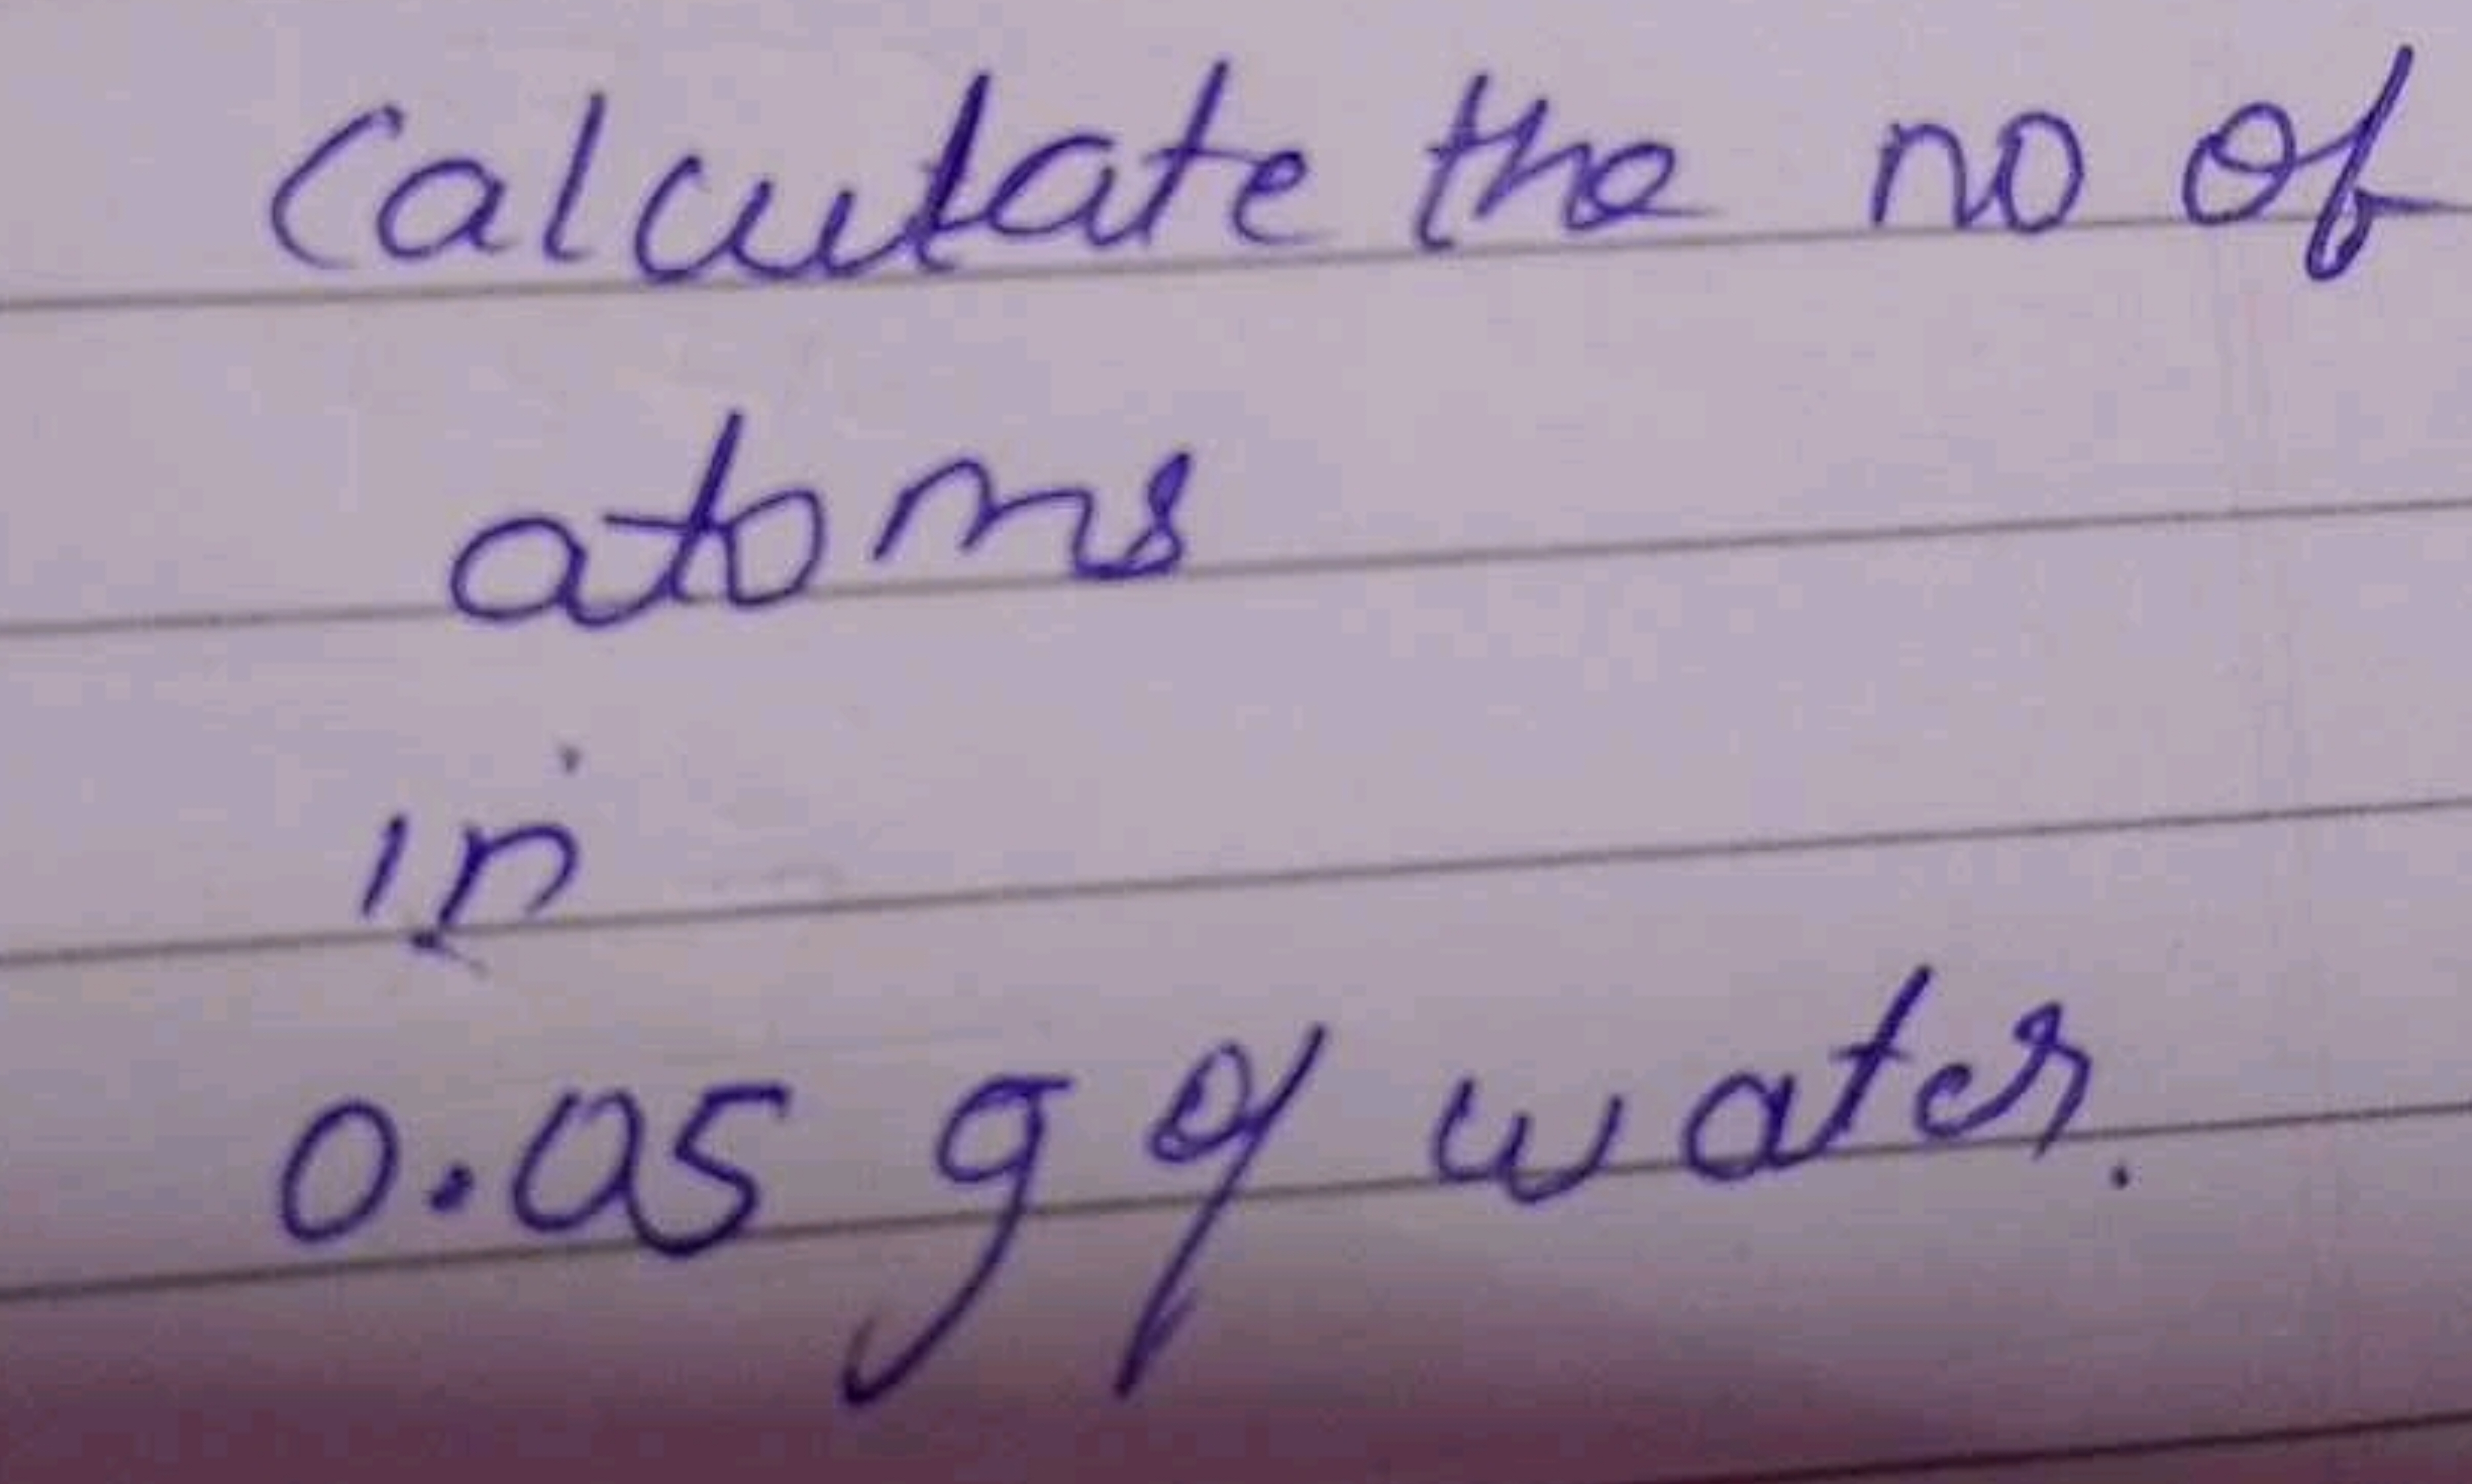 Calculate the no of
atoms
in
0.05 g of water.